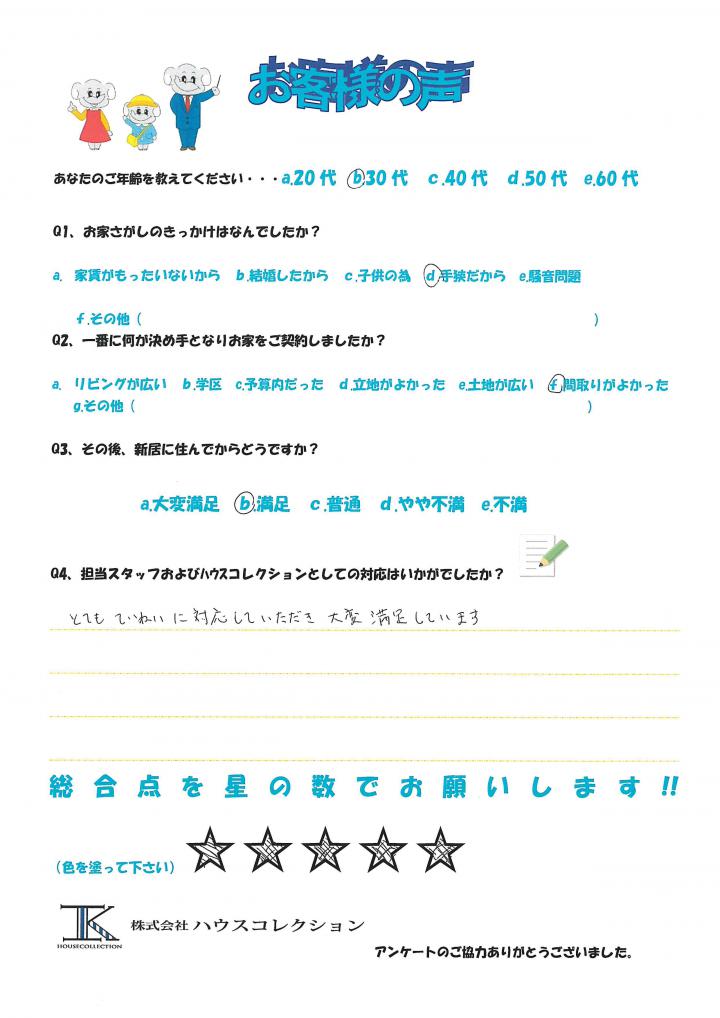 お客様の声
あなたのご年齢を教えてください・・・a.20代 b.30代 c.40代 d.50代 e.60代
Q1、お家さがしのきっかけはなんでしたか？
a. 家賃がもったいないから b.結婚したから c.子供の為 d.手狭だから e.騒音問題
f.その他（ ）
Q2、一番に何が決め手となりお家をご契約しましたか？
a. リビングが広い b.学区 c.予算内だった d.立地がよかった e.土地が広い f.間取りがよかった
g.その他（ ）
Q3、その後、新居に住んでからどうですか？
a.大変満足 b.満足 c.普通 d.やや不満 e.不満
Q4、担当スタッフおよびﾊｳｽコレクションとしての対応はいかがでしたか？
とても ていねい に 対応していただき 大変 満足しています
総合点を星の数でお願いします!!
（色を塗って下さい）
HOUSECOLLECTION
株式会社 ハウスコレクション
アンケートのご協力ありがとうございました。